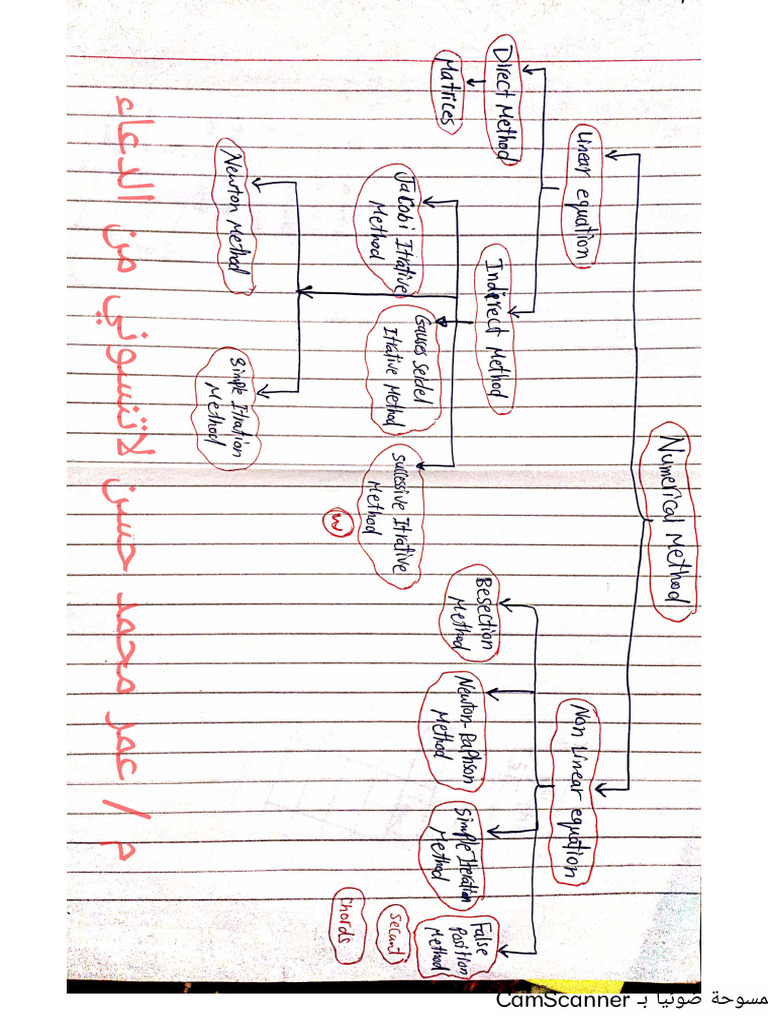 Numerical Method
Linear equation
Non Linear equation
Direct Method
Indirect Method
Matrices
Jakobi Itrative
Method
Gauses seidel
Itrative Method
Successive Itrative
Method
w
Newton Method
Simple Itration
Method
Besection
Method
Newton-Raphson
Method
Simple Iteration
Method
False
Position
Method
secant
Chords
م/ عمر محمد حسن لاتنسوني من الدعاء
ممسوحة ضوئيا بـ CamScanner